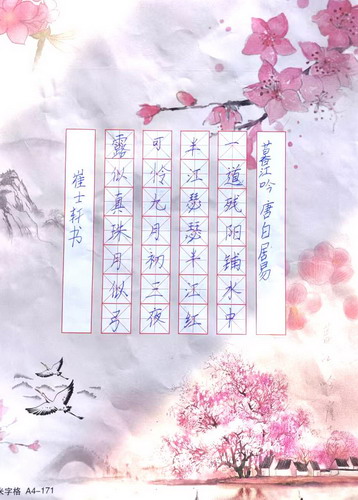 暮江吟 唐 白居易
一道残阳铺水中
半江瑟瑟半江红
可怜九月初三夜
露似真珠月似弓
崔士轩书
米字格 A4-171